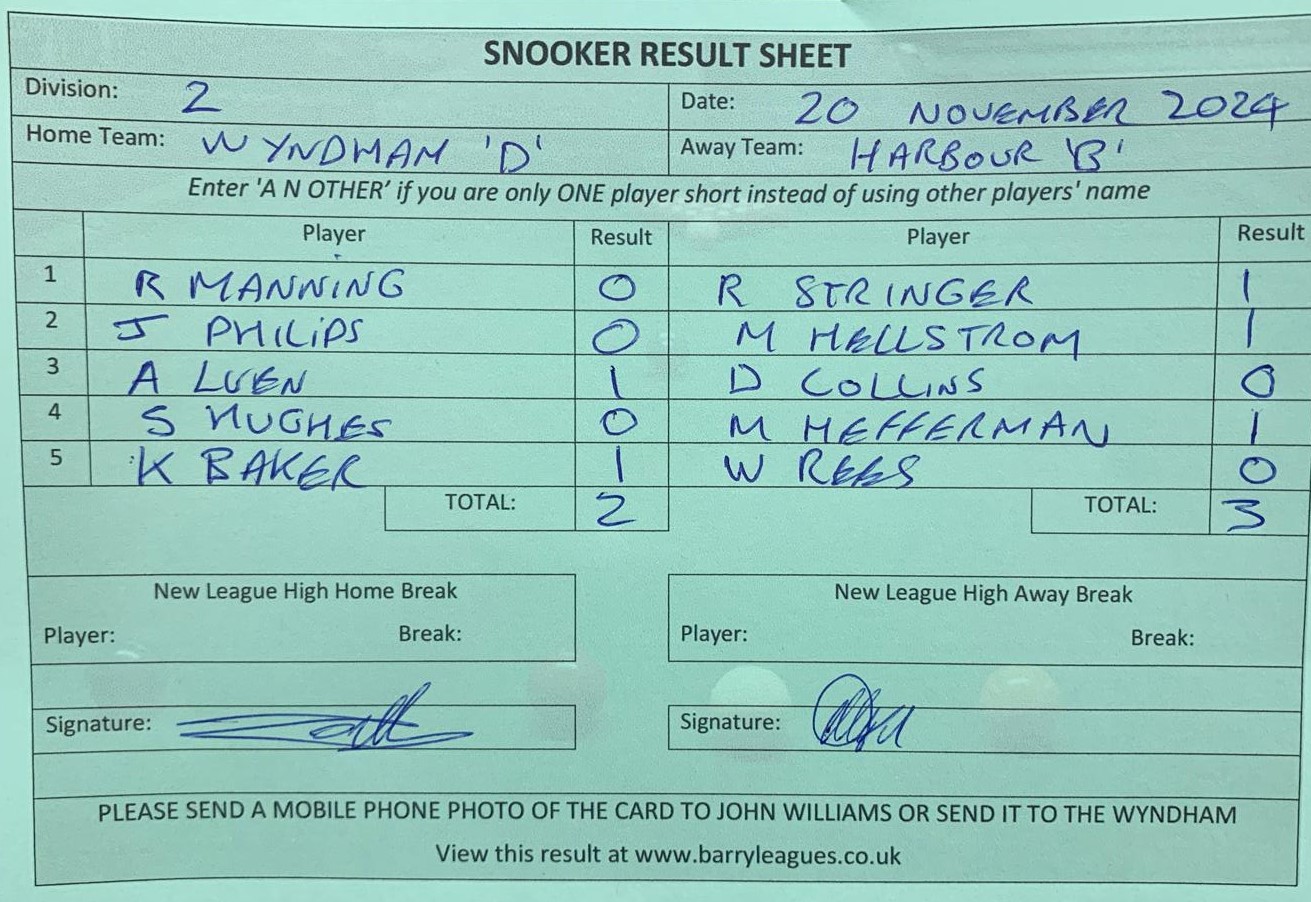 SNOOKER RESULT SHEET
Division: 2 Date: 20 NOVEMBER 2024
Home Team: WYNDHAM 'D' Away Team: HARBOUR 'B'
Enter 'A N OTHER' if you are only ONE player short instead of using other players' name
Player Result Player Result
1 R MANNING 0 R STRINGER 1
2 J PHILIPS 0 M HELLSTROM 1
3 A LUEN 1 D COLLINS 0
4 S HUGHES 0 M HEFFERMAN 1
5 K BAKER 1 W REES 0
TOTAL: 2 TOTAL: 3
New League High Home Break New League High Away Break
Player: Break: Player: Break:
Signature: Signature:
PLEASE SEND A MOBILE PHONE PHOTO OF THE CARD TO JOHN WILLIAMS OR SEND IT TO THE WYNDHAM
View this result at www.barryleagues.co.uk